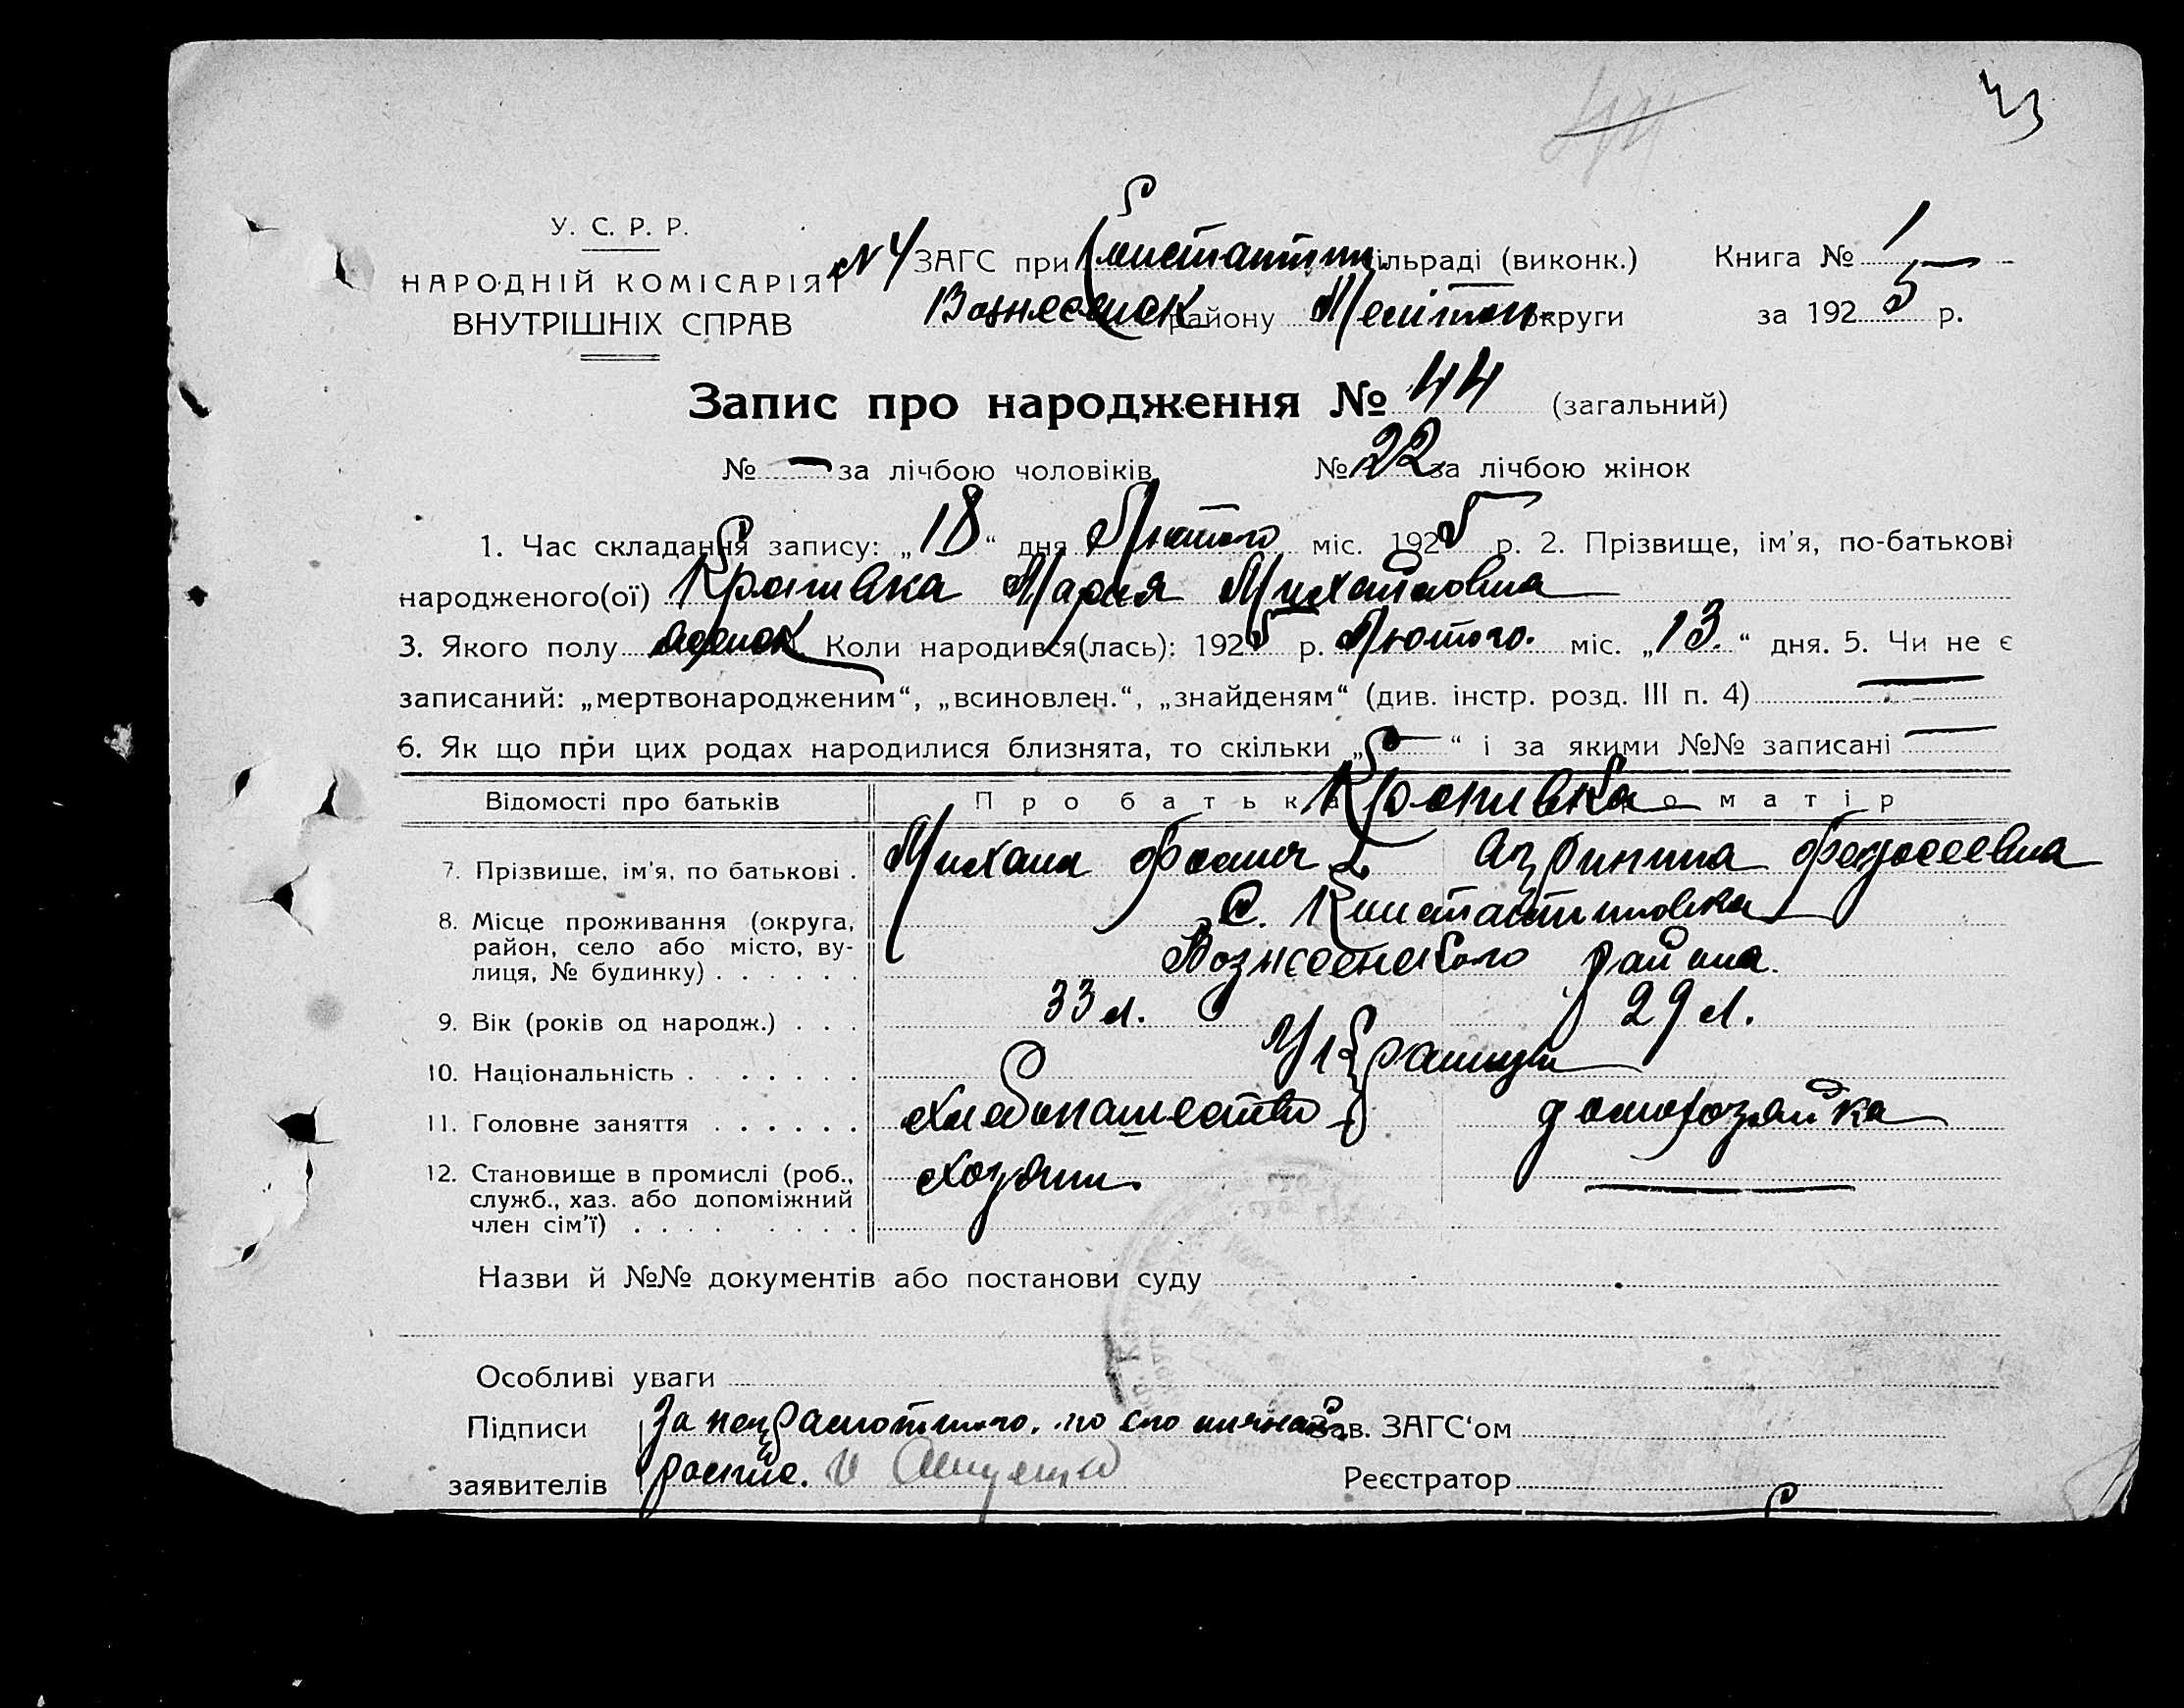 43
44
У. С. Р. Р.
НАРОДНІЙ КОМІСАРІЯТ
ВНУТРІШНІХ СПРАВ
N 4 ЗАГС при Константин. сільраді (виконк.) Книга № 1
Вознесенск району Мелітоп. округи за 1925 р.
Запис про народження № 44 (загальний)
№ — за лічбою чоловіків № 22 за лічбою жінок
1. Час складання запису: „18“ дня Лютого міс. 1925 р. 2. Прізвище, ім'я, по-батькові
народженого(ої) Кропивка Мария Михайловна
3. Якого полу женск. Коли народився(лась): 1925 р. Лютого. міс. „13.“ дня. 5. Чи не є
записаний: „мертвонародженим“, „всиновлен.“, „знайденям“ (див. інстр. розд. III п. 4) —
6. Як що при цих родах народилися близнята, то скільки „ — “ і за якими №№ записані —
Відомості про батьків Про батька Про матір
Кропивка
7. Прізвище, ім'я, по батькові . Михаил Фомич Агрипина Федосеевна
8. Місце проживання (округа, район, село або місто, вулиця, № будинку) . . . . . . С. Константиновка
Вознесенского района.
9. Вік (років од народж.) . . . 33 л. 29 л.
10. Національність . . . . . . Украинцы
11. Головне заняття . . . . . . Хлебопашество домохозяйка
12. Становище в промислі (роб., служб., хаз. або допоміжний член сім'ї) . . . . . . . . Хозяин. —
Назви й №№ документів або постанови суду
Особливі уваги
Підписи За неграмотного. по его личной Зав. ЗАГС‘ом
заявителів росписе. Реєстратор